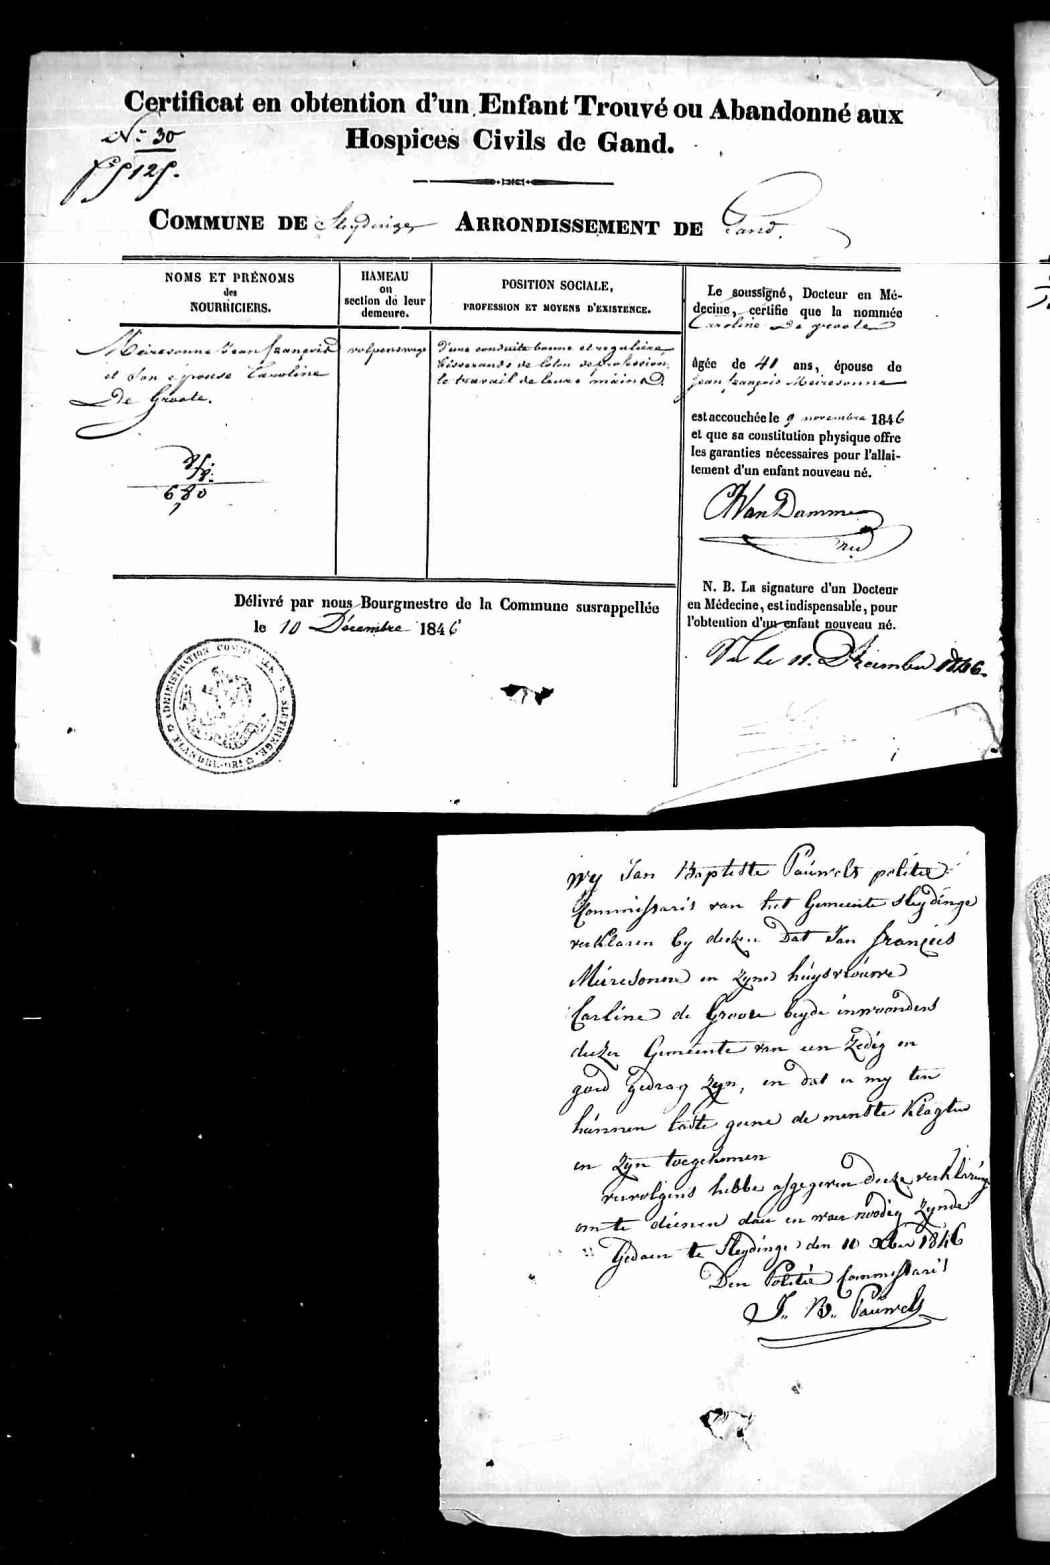 Certificat en obtention d'un Enfant Trouvé ou Abandonné aux
Hospices Civils de Gand.
N.º 30
125.
COMMUNE DE Sleydinge ARRONDISSEMENT DE Gand.
NOMS ET PRÉNOMS
des
NOURRICIERS.
HAMEAU
ou
section de leur
demeure.
POSITION SOCIALE,
PROFESSION ET MOYENS D'EXISTENCE.
Meiresonne Jean François
et Son épouse Caroline
De Groote.
volpenswege
d'une conduite bonne et regulière
tisserands de coton de profession,
le travail de leurs mains.
680
Le soussigné, Docteur en Mé-
decine, certifie que la nommée
Caroline De groote
âgée de 41 ans, épouse de
Jean françois Meiresonne
est accouchée le 9 novembre 1846
et que sa constitution physique offre
les garanties nécessaires pour l'allai-
tement d'un enfant nouveau né.
Van Damme
N. B. La signature d'un Docteur
en Médecine, est indispensable, pour
l'obtention d'un enfant nouveau né.
Vu le 11 Décember 1846.
Délivré par nous Bourgmestre de la Commune susrappellée
le 10 Décembre 1846
ADMINISTRATION COMMUNALE
FLANDRE OR.
Wy Jan Baptiste Pauwels politie
Commissaris van het Gemeente Sleydinge
verklaren by deezen Dat Jan françies
Meiresonen en zyne huysvrouwe
Carline de Groote beyde inwoonders
deezer Gemeente van een Zedig en
goed gedrag zyn, en dat er my ten
hunnen laste geene de menste klagten
en zyn toegekomen
vervolgens hebbe afgegeven deeze verklaring
om te dienen daer en waer noodig zynde
Gedaen te Sleydinge den 10 Xber 1846
Den Politie Commissaris
J. B. Pauwels